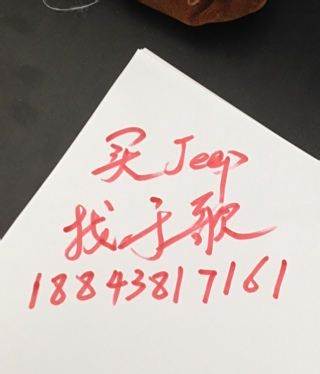 买Jeep
找于歌
18843817161